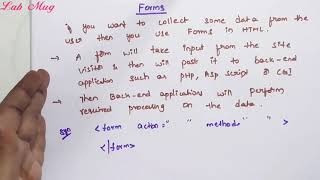 Lab Mug
Forms
if you want to collect some data from the
user then you use Forms in HTML.
→ A form will take input from the site
visitor & then will post it to back-end
application such as PHP, ASP script or CGI
→ Then Back-end applications will perform
required processing on the data.
<form action=" " method=" ">
</form>